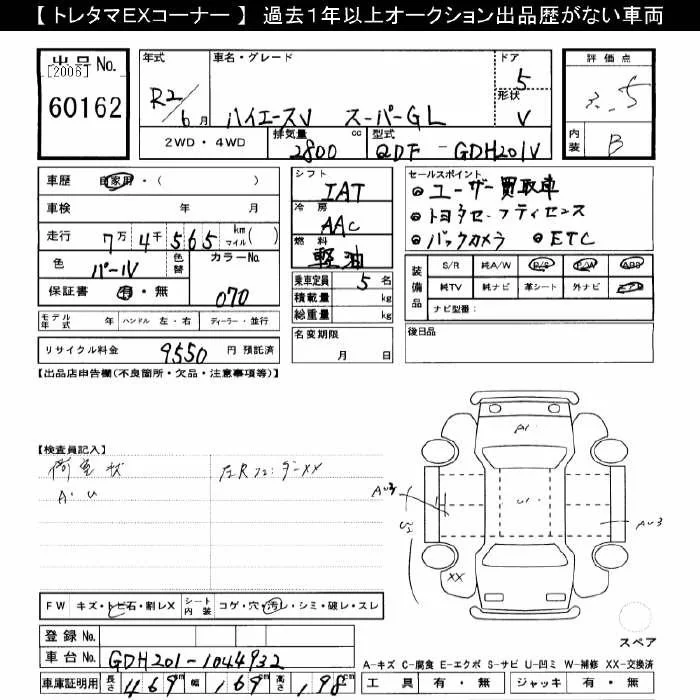 【 トレタマEXコーナー 】 過去1年以上オークション出品歴がない車両
出品No.
[2006]
60162
年式
R2/6月
車名・グレード
ハイエースV スーパーGL
ドア
5
形状
V
評価点
3.5
内装
B
2WD・4WD
排気量
2800
cc
型式
QDF - GDH201V
車歴
自家用・( )
車検
年 月
走行
7万4千565
km
マイル( )
色
パール
色替
カラーNo.
070
保証書
有・無
シフト
IAT
冷房
AAC
燃料
軽油
乗車定員
5名
積載量
kg
総重量
kg
セールスポイント
◎ユーザー買取車
◎トヨタセーフティセンス
◎バックカメラ ◎ETC
装備品
S/R 純A/W P/S P/W ABS
純TV 純ナビ 革シート 外ナビ
ナビ型番:
モデル年式
年
ハンドル 左・右
ディーラー・並行
リサイクル料金
9550
円 預託済
名変期限
月 日
後日品
【出品店申告欄(不良箇所・欠品・注意事項等)】
【検査員記入】
荷室状
A・U
XX
A1
U1
U2
AU3
XX
FW
キズ・トビ石・割レX
シート内装
コゲ・穴・汚レ・シミ・破レ・スレ
登録No.
車台No.
GDH201-1044932
車庫証明用
長さ
469
cm
幅
169
cm
高さ
198
cm
スペア
A-キズ C-腐食 E-エクボ S-サビ U-凹ミ W-補修 XX-交換済
工具
有・無
ジャッキ
有・無